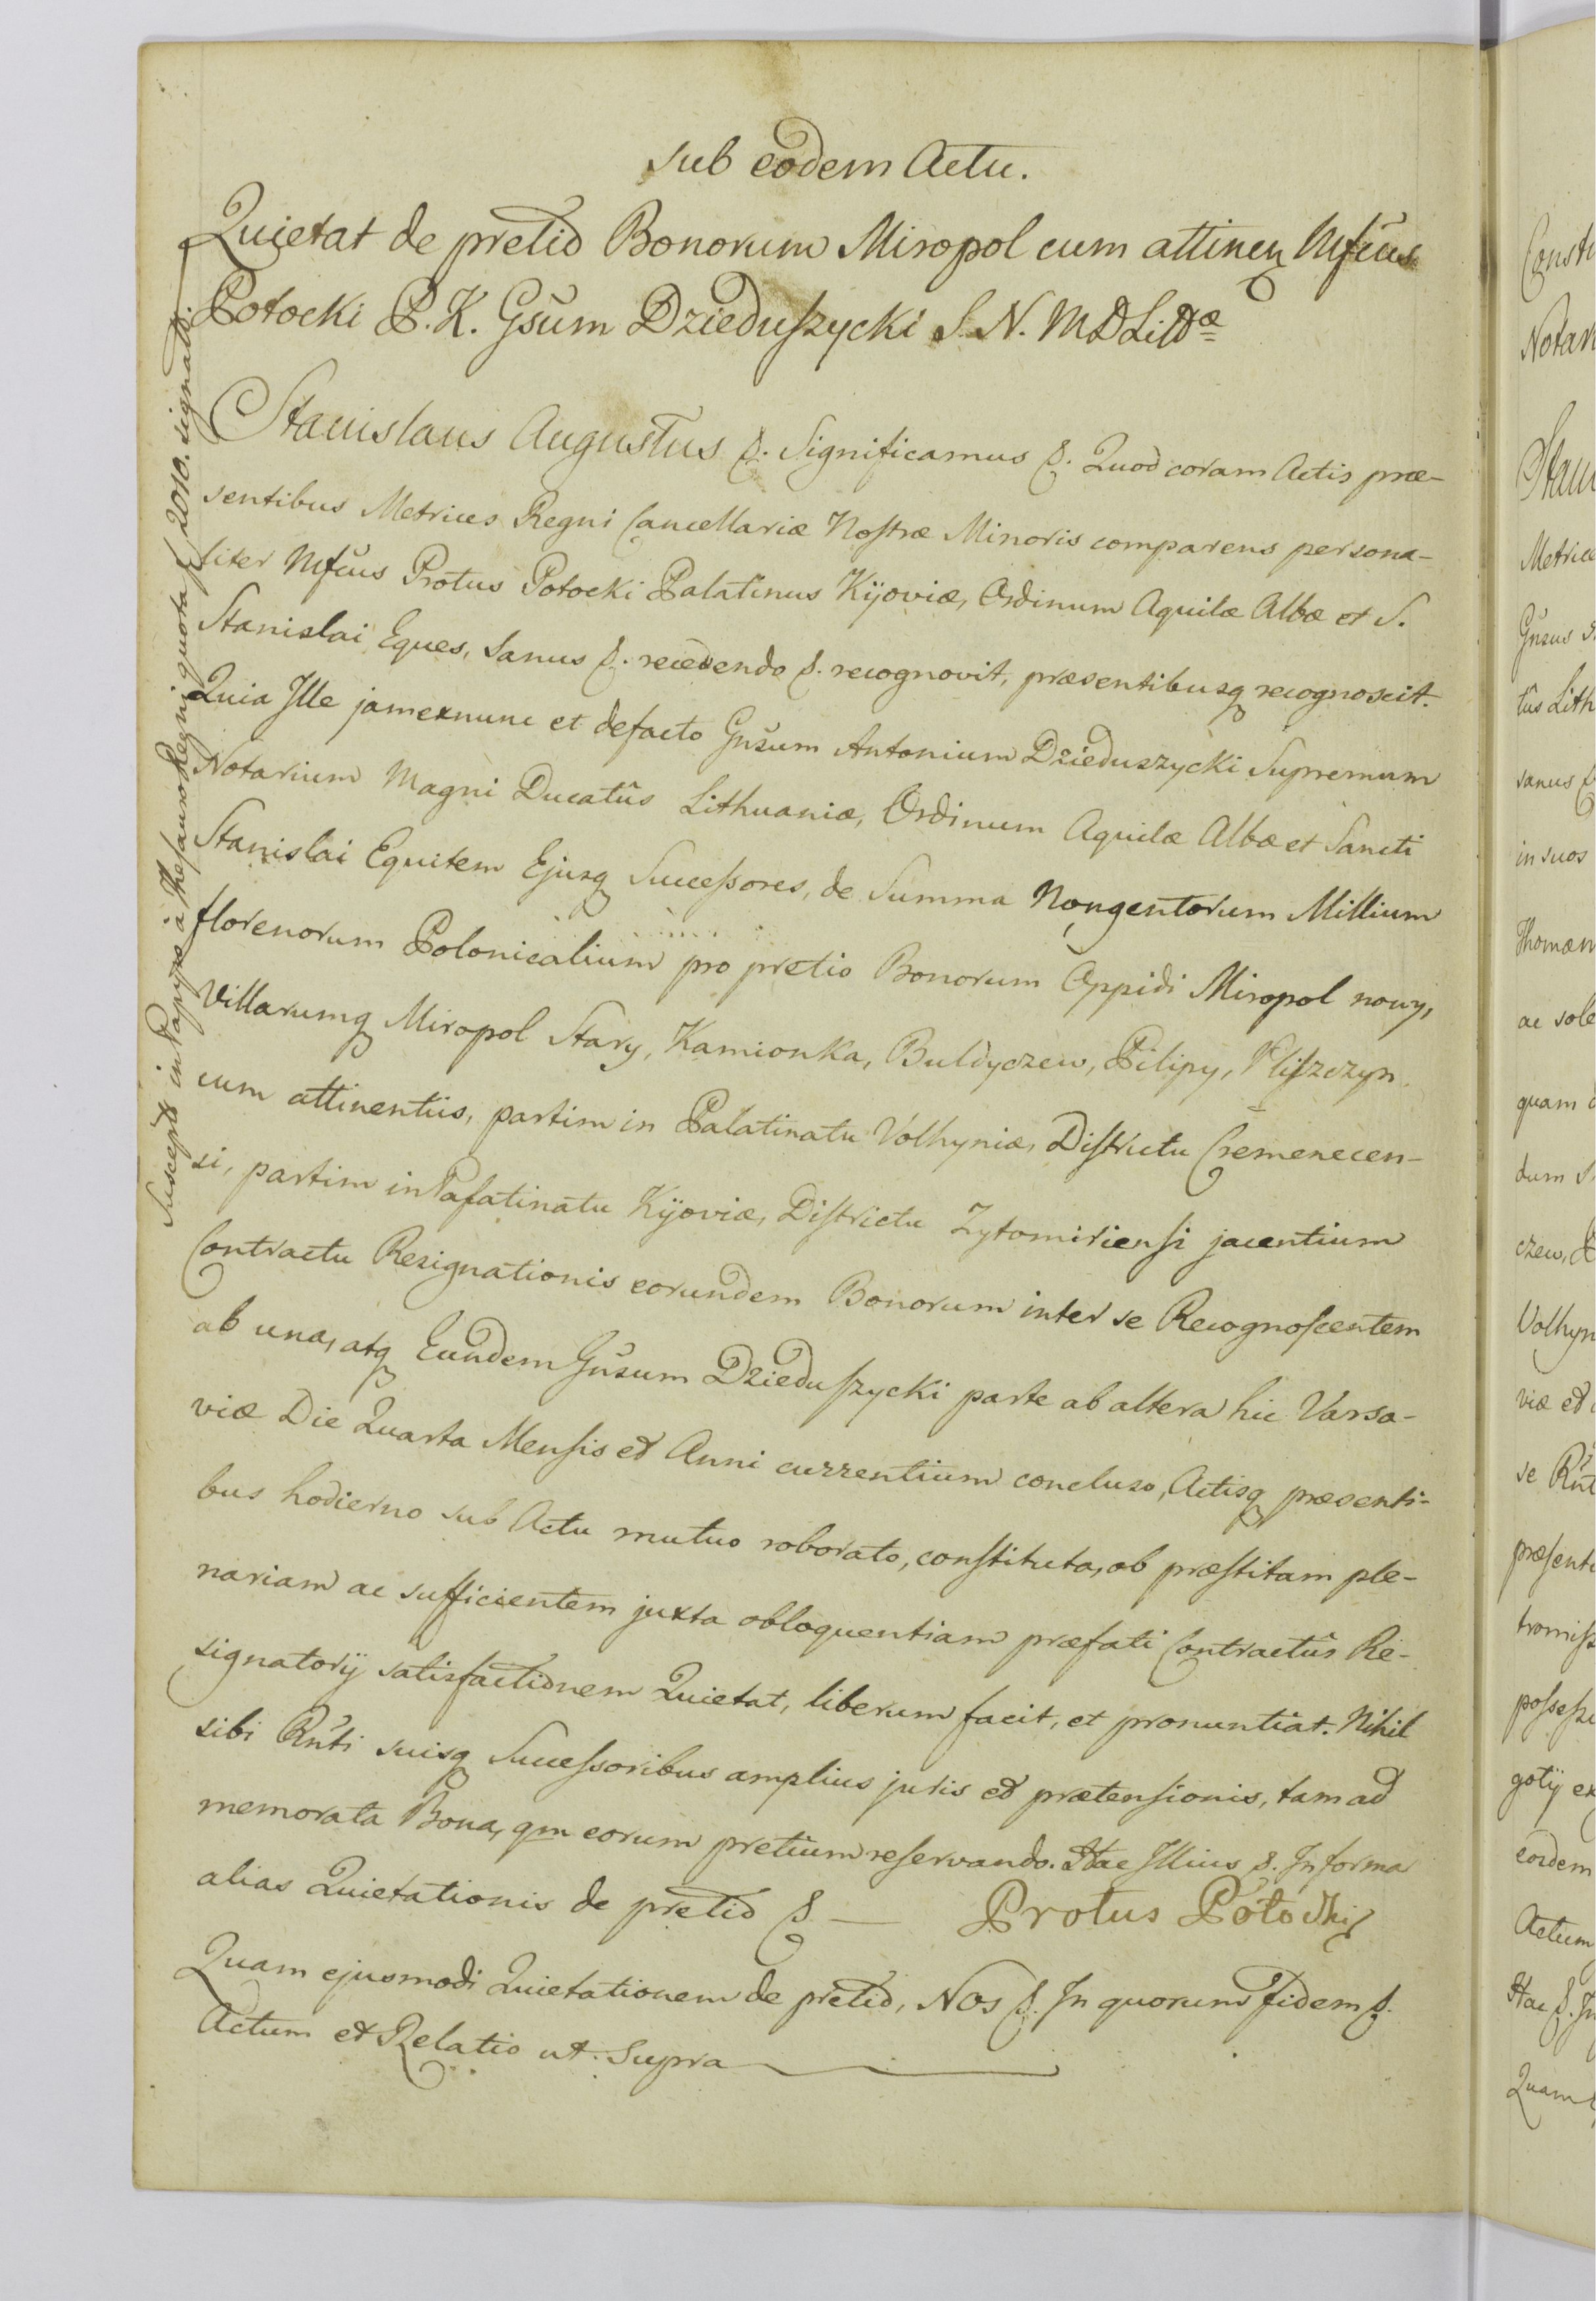 sub eodem Actu.
Quietat de pretio Bonorum Miropol cum attinen Mfcus
Potocki P. K. Gsum Dzieduszycki S. N. M D Littæ
Stanislaus Augustus &. Significamus &. Quod coram Actis præ-
sentibus Metrices Regni Cancellariæ Nostræ Minoris comparens persona-
liter Mfcus Protus Potocki Palatinus Kijoviæ, Ordinum Aquilæ Albæ et S.
Stanislai Eques, sanus &. recedendo &. recognovit, præsentibusq recognoscit.
Quia Ille jamexnunc et defacto Gnsum Antonium Dzieduszycki Supremum
Notarium Magni Ducatûs Lithuaniæ, Ordinum Aquilæ Albæ et Sancti
Stanislai Equitem Ejusq Successores, de Summa Nongentorum Millium
florenorum Polonicalium pro pretio Bonorum Oppidi Miropol nowy,
Villarumq Miropol Stary, Kamionka, Buldyczew, Pilipy, Pliszczyn
cum attinentiis, partim in Palatinatu Volhyniæ, Districtu Cremenecen-
si, partim in Palatinatu Kijoviæ, Districtu Zytomiriensi jacentium
Contractu Resignationis eorundem Bonorum inter se Recognoscentem
ab una, atq Eundem Gnsum Dzieduszycki parte ab altera hic Varsa-
viæ Die Quarta Mensis et Anni currentium concluso, Actisq præsenti-
bus hodierno sub Actu mutuo roborato, constituta, ob præstitam ple-
nariam ac sufficientem juxta obloquentiam præfati Contractûs Re-
signatorij satisfactionem Quietat, liberum facit, et pronuntiat. Nihil
sibi Rnti suisq Successoribus amplius juris et prætensionis, tam ad
memorata Bona, qm eorum pretium reservando. Hac Illius &. In forma
alias Quietationis de pretio &. — Protus Potocki
Quam ejusmodi Quietationem de pretio, Nos &. In quorum fidem &.
Actum et Relatio ut Supra
Suscepta in Papyro à Thesauro Regni quota fl 2010. signata.
Consti
Notar
Stani
Metrice
Gnsus
tûs Lith
sanus &
in suos
Thomæm
ac sole
quam
dum
czew, P
Volhyn
viæ et
se Rnt
præsent
tromiss
possess
gotij ex
eordem
Actum
Hac &. In
Quam